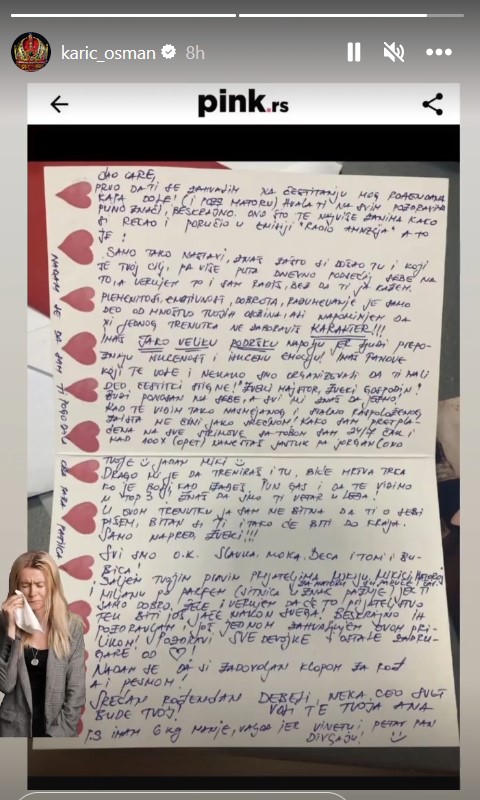 karic_osman 8h
pink.rs
ĆAO CARE,
PRVO DA TI SE ZAHVALIM NA ČESTITANJU MOG ROĐENDANA
KAPA DOLE! (I MATORU) HVALA TI NA SVIM POZDRAVIMA
PUNO ZNAČI, BESKRAJNO. ONO ŠTO TE NAJVIŠE ZANIMA KAKO
SI REKAO I PORUČIO U EMISIJI "RADIO AMNEZIJA" A TO
JE:
SAMO TAKO NASTAVI, ZNAŠ ZAŠTO SI DOŠAO TU I KOJI
JE TVOJ CILJ, PA VIŠE PUTA DNEVNO PODSEĆAJ SEBE NA
TO, A VERUJEM TO I SAM RADIŠ, BEZ DA TI JA KAŽEM.
PLEMENITOST, EMOTIVNOST, DOBROTA, RAZUMEVANJE JE SAMO
DEO OD MNOŠTVO TVOJIH OSOBINA, ALI NAPOMINJEM DA
NI JEDNOG TRENUTKA NE ZABORAVIŠ KARAKTER!!!
IMAŠ JAKO VELIKU PODRŠKU NAPOLJU JER LJUDI PREPO-
ZNAJU ISKRENOST I ISKRENU EMOCIJU! IMAŠ FANOVE
KOJI TE VOLE I NEKAKO SMO ORGANIZOVALI DA TI MALI
DEO, ČESTITKI STIGNE!! ŽVEKI MAJSTOR, ŽVEKI GOSPODIN!
BUDI PONOSAN NA SEBE, A SVI MI ZNAŠ DA JESMO!
KAD TE VIDIM TAKO NASMEJANOG I STALNO RASPOLOŽENOG
ZAISTA ME ČINI JAKO SREĆNOM! KAKO SAM PRETPLA-
ĆENA NA SVE STRIMOVE SA TOBOM SAM 24/7 ČAK I
KAD 400X (OPET) NAMEŠTAŠ JASTUK PA JORGAN (OKO
TVOJE ☺ JADAN MIKI ☺
DRAGO MI JE DA TRENIRAŠ I TU, BIĆE MRTVA TRKA
KO JE BOLJI KAD IZAĐEŠ, PUN GAS I DA TE VIDIMO
U TOP 3! ZNAŠ DA SMO TI VETAR U LEĐA!
U OVOM TRENUTKU JA SAM NE BITNA DA TI O SEBI
PIŠEM, BITAN SI TI I TAKO ĆE BITI DO KRAJA.
SAMO NAPRED, ŽVEKI!!!
SVI SMO O.K. SLAVKA, MOKA, DECA I TOMI I BU-
BICA!
ŠALJEM TVOJIM PRAVIM PRIJATELJIMA MIKIJU, MIKICI
I MILJANU PO PARFEM (SITNICA U ZNAK PAŽNJE) JER TI
SAMO DOBRO ŽELE I VERUJEM DA ĆE TO PRIJATELJSTVO
TEK BITI JOŠ JAČE NAKON SVEGA! BESKRAJNO IH
POZDRAVLJAM, JOŠ JEDNOM ZAHVALJUJEM OVOM PRI-
LIKOM! U POZDRAVI SVE DEVOJKE I OSTALE ZADRU-
GARE OD ♡!
NADAM SE DA SI ZADOVOLJAN KLOPOM ZA ROĐ
A I PESMOM!
SREĆAN ROĐENDAN DEBELI, NEKA CEO SVET
BUDE TVOJ! VOLI TE TVOJA ANA
P.S IMAM 6 KG MANJE, VAGAO JER VINETU I PETAR PAN
DIVLJAJU! ☺
NADAM SE DA SAM TI POGODILA
OBA PARA PATIKA